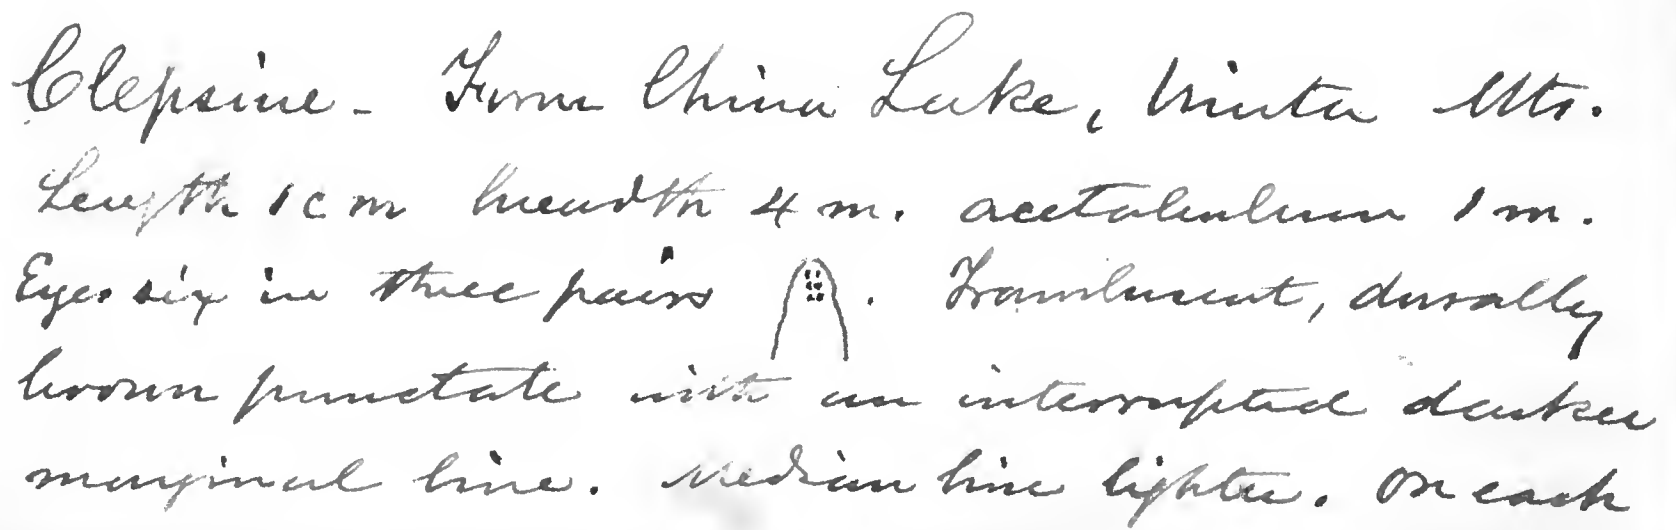 Clepsine - From China Lake, Uinta Mts.
Length 1 c m breadth 4 m. acetabulum 1 m.
Eyes six in three pairs . Translucent, dorsally
brown punctate with an interrupted darker
marginal line. Median line lighter. On each